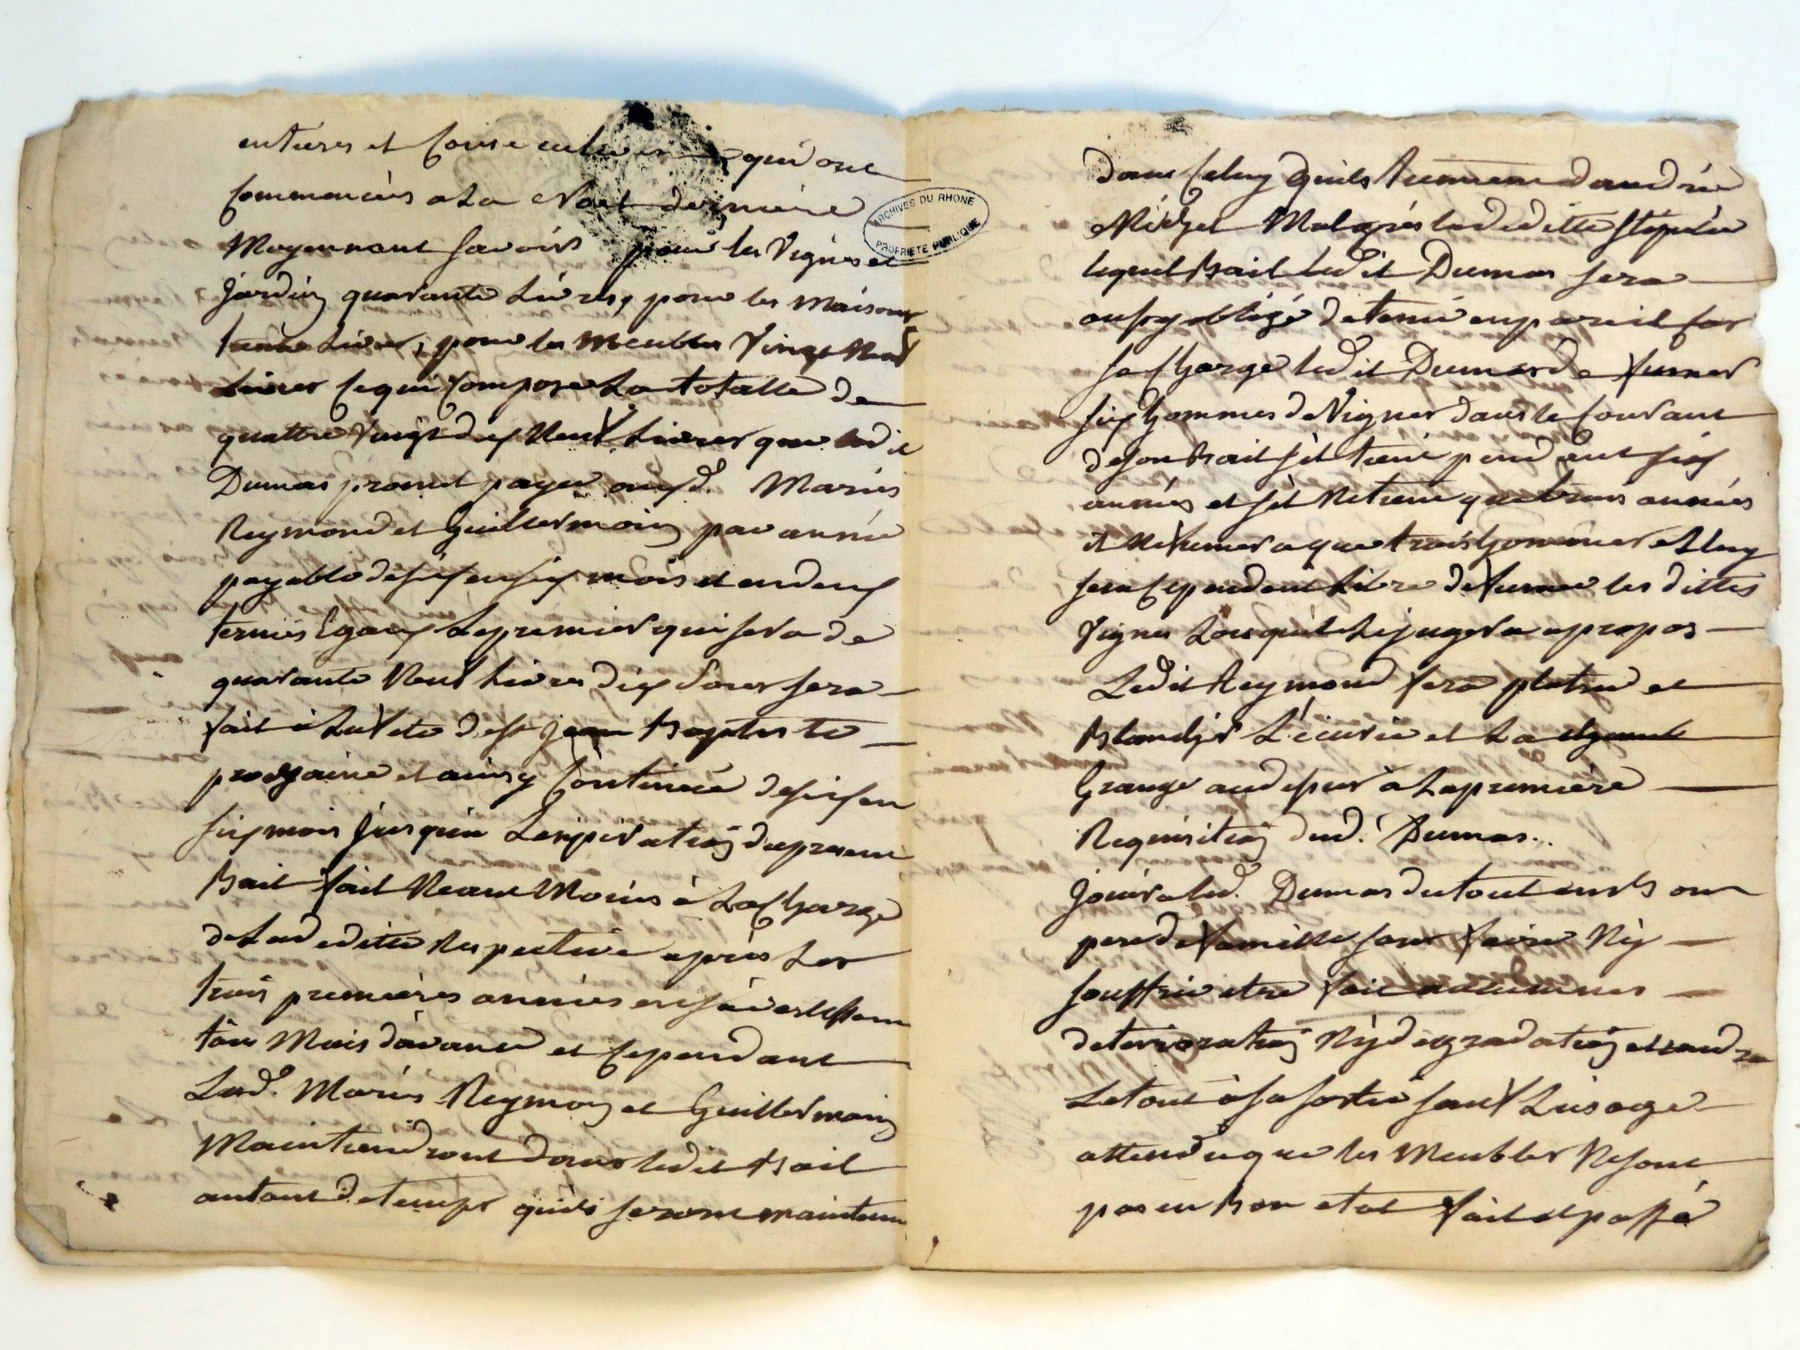 entieres et Consecutives qui ont
Commencées a La Noel derniére
Moyennant Savoirs pour les Vignes et
Jardin quarante Livres, pour les maisons
trente Livres, pour les Meubles Vingt Neuf
Livres Ce qui Compose La totalle de
quattre Vingt dix Neuf Livres que ledit
Dumas promet payer auxd. Mariés
Reymond et Guillermain par année
payable de six en six mois et en deux
termes Egaux Le premier qui sera de
quarante Neuf Livres dix Sous sera
fait à La fete de st Jean Baptiste
prochaine et ainsy Continué de six en
six mois Jusqu'a Lexpiration du present
Bail fait Neant Moins à La Charge
de La deditte Respective après Les
trois premières années en s'avertissant
Mois d'avance et Cependant
Lesd. Mariés Reymon et Guillermain
Maintiendront dans ledit Bail
autant de temps qu'ils seront maintenu
ARCHIVES DU RHONE
PROPRIÉTÉ PUBLIQUE
dans Celuy quils tiennent d'andrée
Malgrés La deditte stipulée
lequel Bail ledit Dumas sera
aussy obligé de tenir en pareil Cas
sa Charge ledit Dumas de fumer
six hommes de Vignes dans le Courant
de son Bail s'il tient pendant six
années et s'il Ne tient que trois années
il Ne fumera que trois hommes et luy
sera Cependant Libre de fumer les dittes
Vignes Lorsquil Le jugera apropos
Ledit Reymond fera platrer et
Blanchir L'écurie et La
Grange au dessus à La premiére
Requisition dud. Dumas..
Jouira led. Dumas du tout en bon
pere de famille sans faire Ny
souffrir etre fait aucunnes
deterioration Ny degradation et rendra
Le tout à sa sortie sauf L'usage
attendu que les Meubles Ne sont
pas en Bon etat fait et passé